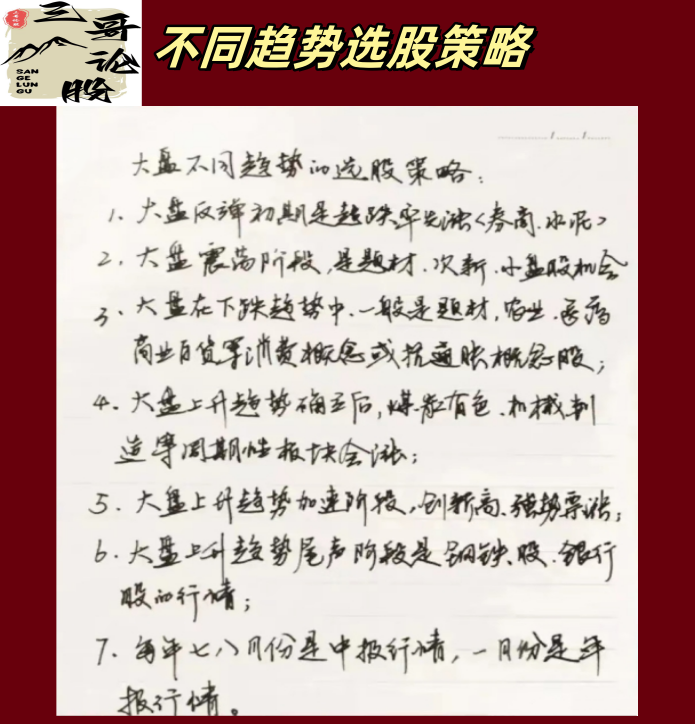 三哥论股
SAN
GE
LUN
GU
不同趋势选股策略
大盘不同趋势的选股策略:
1、大盘反弹初期是超跌率先涨<券商、水泥>
2、大盘震荡阶段,是题材、次新、小盘股机会
3、大盘在下跌趋势中、一般是题材,农业、医药
商业百货等消费概念或抗通胀概念股;
4、大盘上升趋势确立后,煤炭有色、机械制
造等周期性板块会涨;
5、大盘上升趋势加速阶段,创新高、强势票涨;
6、大盘上升趋势尾声阶段是钢铁、股、银行
股的行情;
7、每年七八月份是中报行情,一月份是年
报行情。